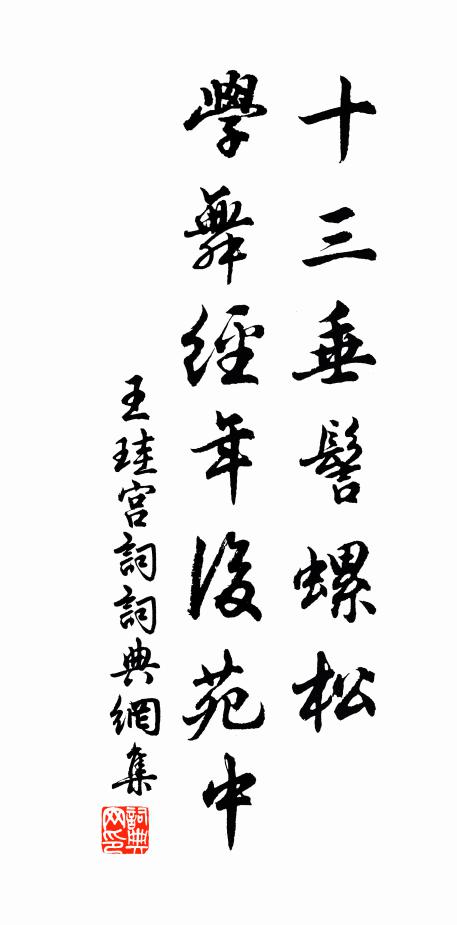 十三垂髻螺松
學舞經年後苑中
王珪宮詞詞典網集
詞典网印